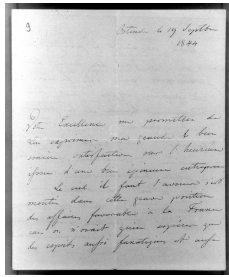 9
Ostende le 19 Septbre
1844
Votre Excellence me permettra de
lui exprimer ma grande & bien
sincère satisfaction sur l'heureuse
d'une bien épineuse entreprise
Le ciel il faut l'avouer s'est
montré dans cette grave question
des affaires favorable à la France
car on n'avait guère espérer que
des esprits aussi fanatiques et aussi